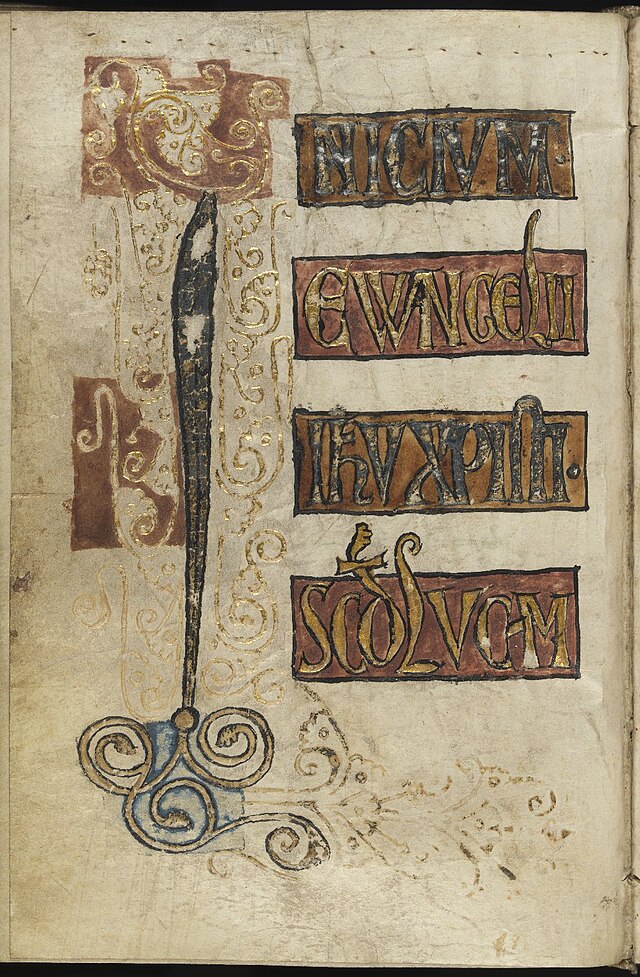 INICIVM·
EWANGELII
IHV XPI
SCD LVCAM